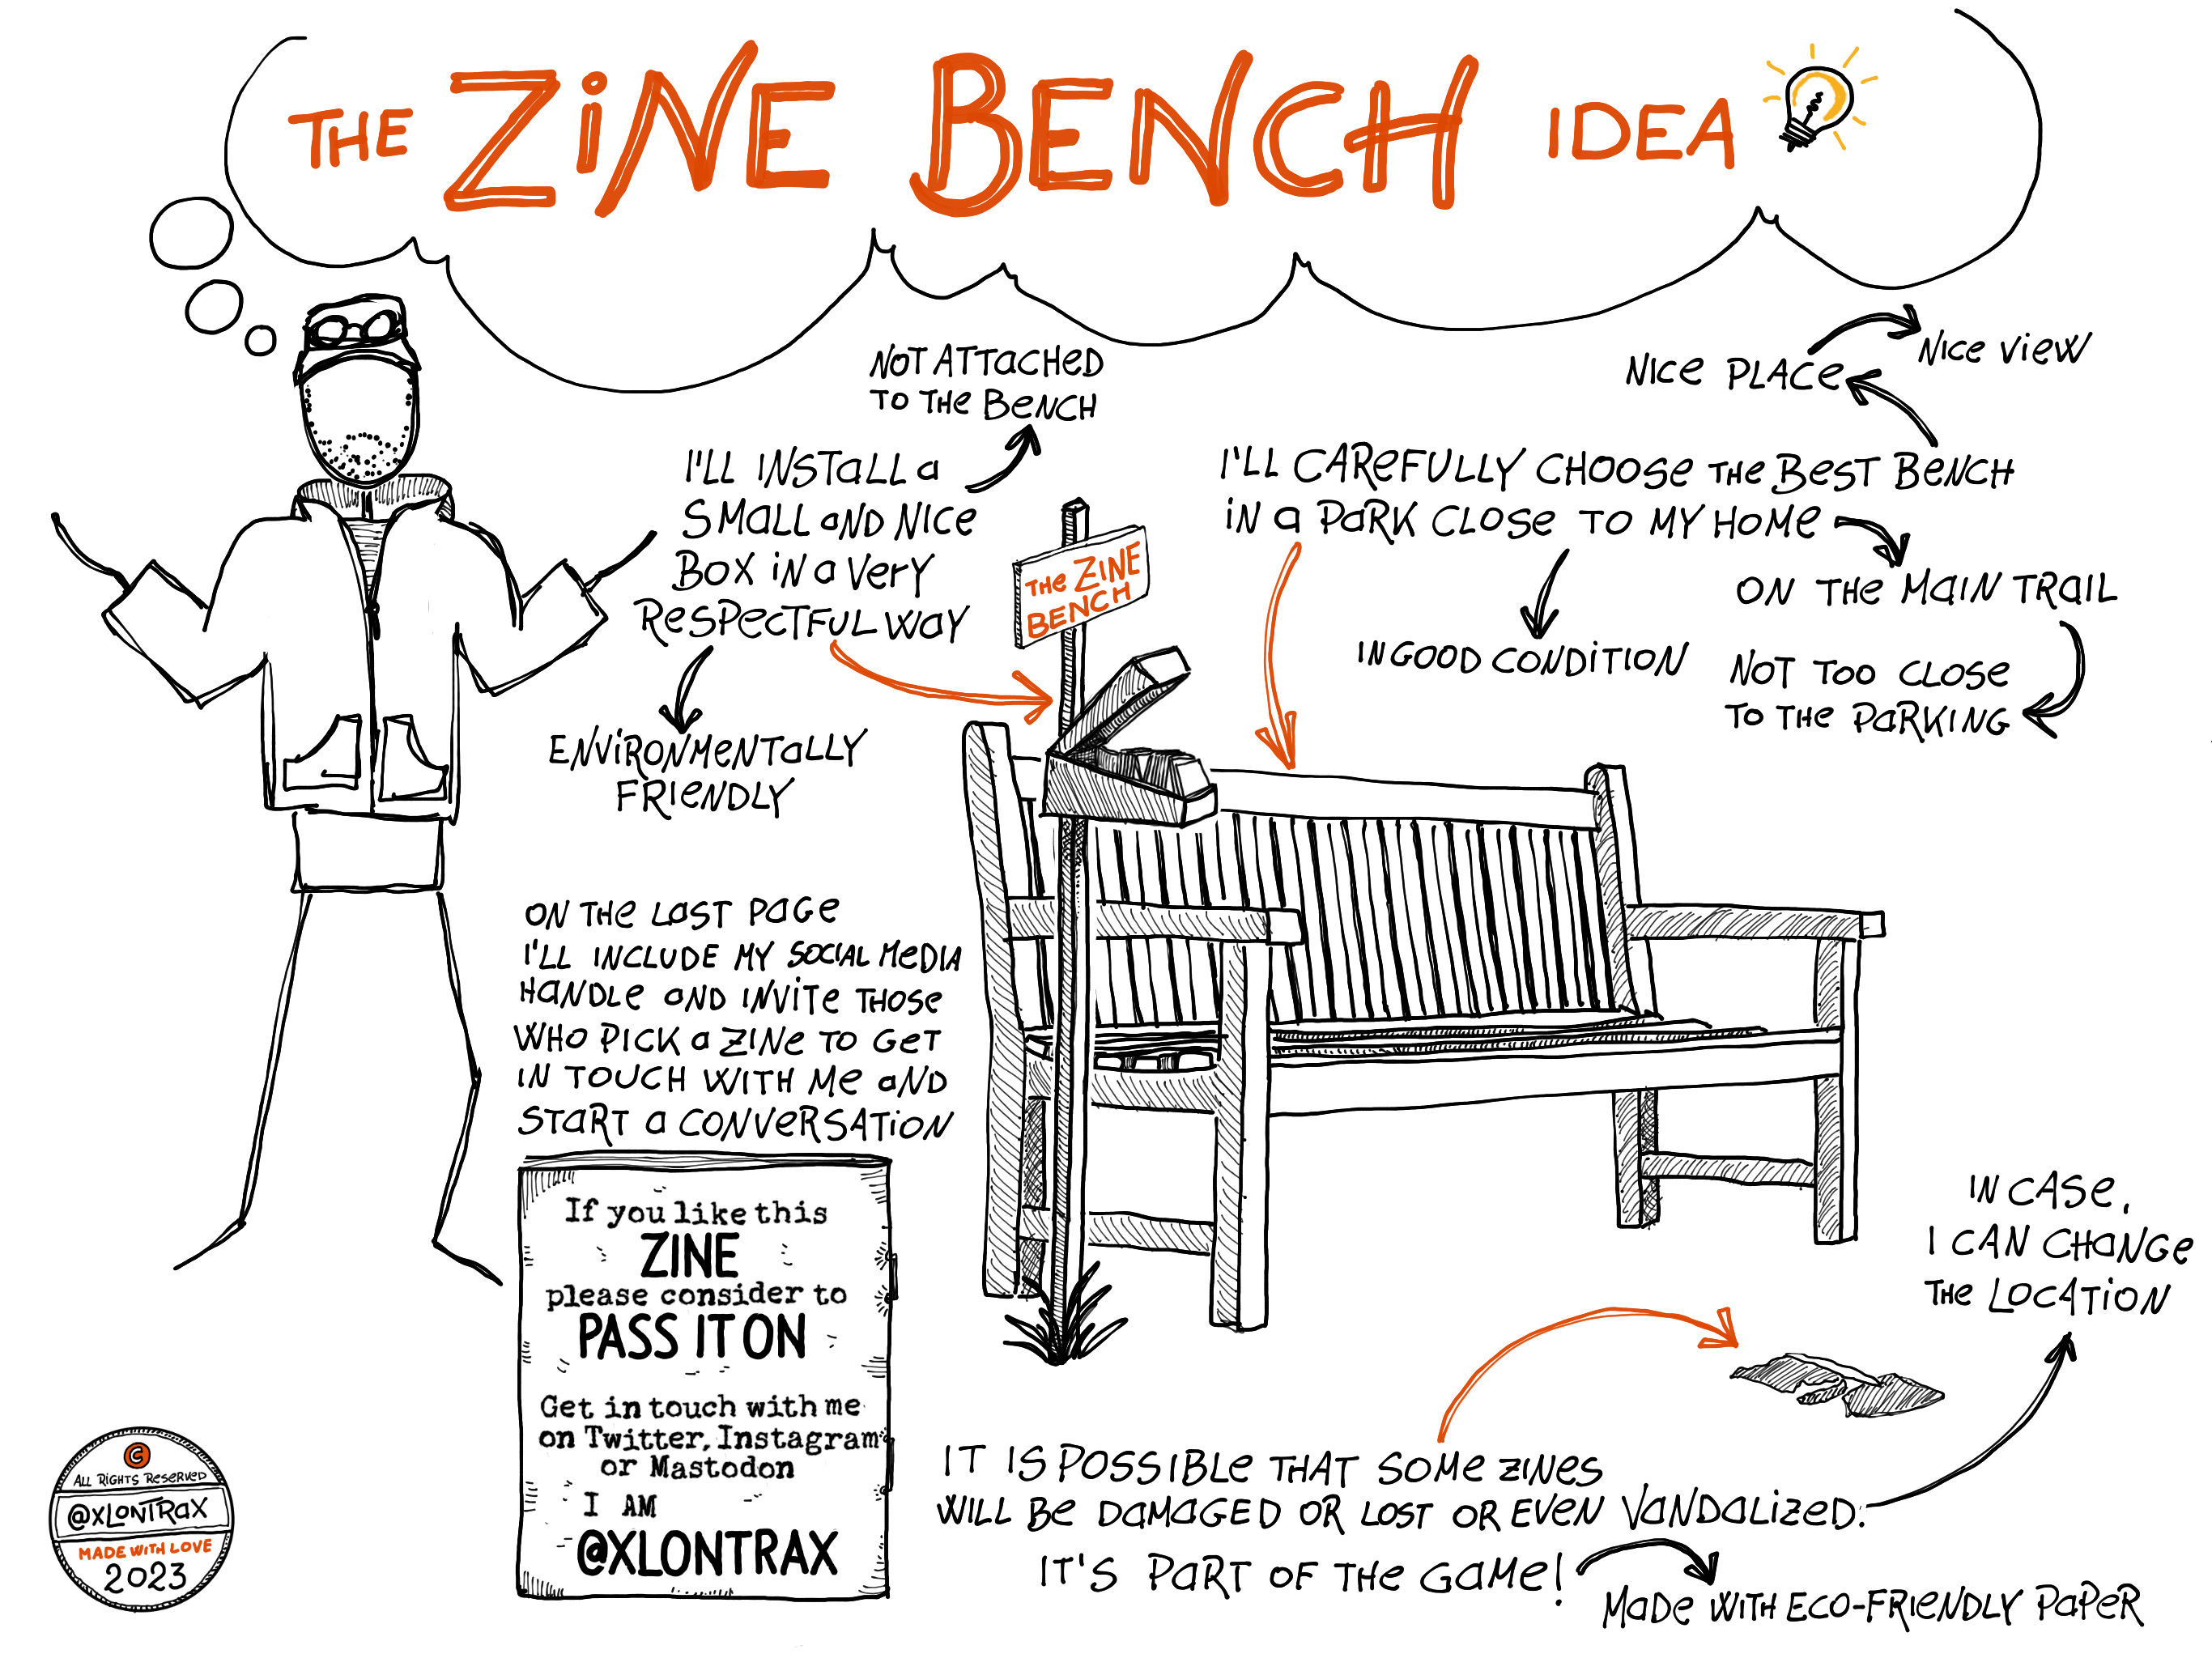 THE ZINE BENCH IDEA
NOT ATTACHED
TO THE BENCH
I'LL INSTALL A
SMALL AND NICE
BOX IN A VERY
RESPECTFUL WAY
ENVIRONMENTALLY
FRIENDLY
NICE PLACE
NICE VIEW
I'LL CAREFULLY CHOOSE THE BEST BENCH
IN A PARK CLOSE TO MY HOME
IN GOOD CONDITION
ON THE MAIN TRAIL
NOT TOO CLOSE
TO THE PARKING
THE ZINE
BENCH
ON THE LAST PAGE
I'LL INCLUDE MY SOCIAL MEDIA
HANDLE AND INVITE THOSE
WHO PICK A ZINE TO GET
IN TOUCH WITH ME AND
START A CONVERSATION
If you like this
ZINE
please consider to
PASS IT ON
Get in touch with me
on Twitter, Instagram
or Mastodon
I AM
@XLONTRAX
IN CASE,
I CAN CHANGE
THE LOCATION
IT IS POSSIBLE THAT SOME ZINES
WILL BE DAMAGED OR LOST OR EVEN VANDALIZED.
IT'S PART OF THE GAME!
MADE WITH ECO-FRIENDLY PAPER
C
ALL RIGHTS RESERVED
@XLONTRAX
MADE WITH LOVE
2023